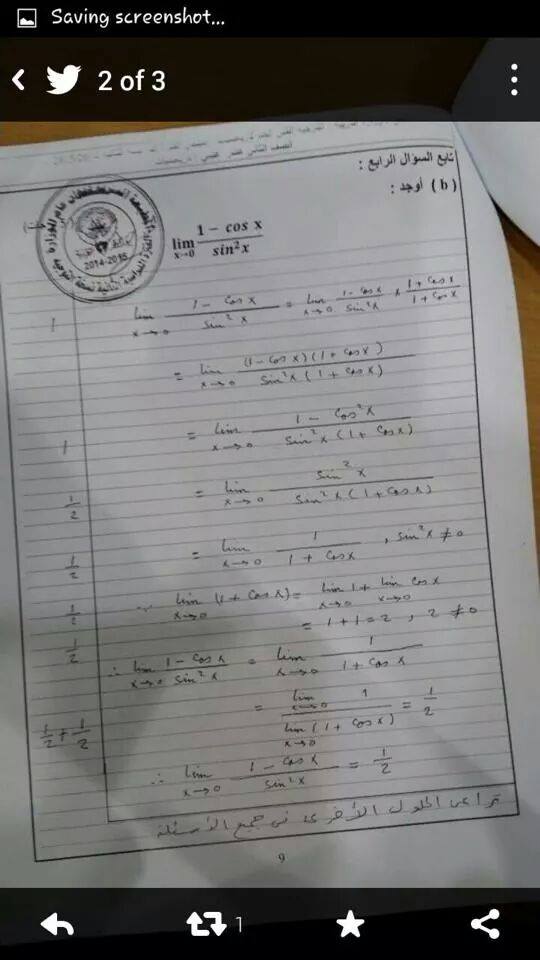 Saving screenshot...
2 of 3
تابع السؤال الرابع :
(b) أوجد :
lim x→0 (1 − cos x)/(sin²x)
2014-2015
1 lim x→0 (1 − cos x)/(sin² x) = lim x→0 (1 − cos x)/(sin² x) × (1 + cos x)/(1 + cos x)
= lim x→0 ((1 − cos x)(1 + cos x))/(sin² x (1 + cos x))
1 = lim x→0 (1 − cos² x)/(sin² x (1 + cos x))
1/2 = lim x→0 (sin² x)/(sin² x (1 + cos x))
1/2 = lim x→0 1/(1 + cos x) , sin² x ≠ 0
1/2 ∵ lim x→0 (1 + cos x) = lim x→0 1 + lim x→0 cos x
= 1 + 1 = 2 , 2 ≠ 0
1/2 ∴ lim x→0 (1 − cos x)/(sin² x) = lim x→0 1/(1 + cos x)
1/2 + 1/2 = (lim x→0 1)/(lim x→0 (1 + cos x)) = 1/2
∴ lim x→0 (1 − cos x)/(sin² x) = 1/2
تراعى الحلول الأخرى في جميع الأسئلة
9
1